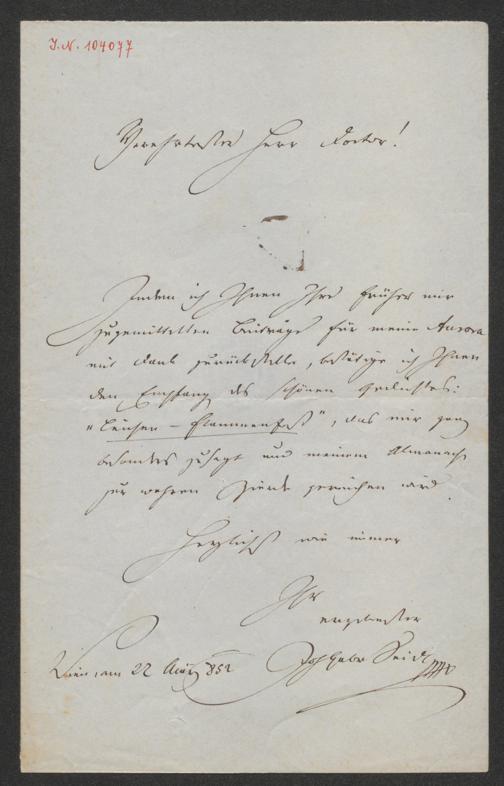 I.N. 104077
Verehrtester Herr Doctor!
Indem ich Ihnen Ihre früher mir
zugemittelten Beiträge für meine Aurora
mit Dank zurückstelle, bestätige ich Ihnen
den Empfang des schönen Gedichtes:
"Leichen – Flammenfest", das mir ganz
besonders zusagt und meinem Almanach
zur wahren Zierde gereichen wird.
Herzlichst wie immer
Ihr
ergebenster
Wien, am 22 852 Joh Gabr Seidl